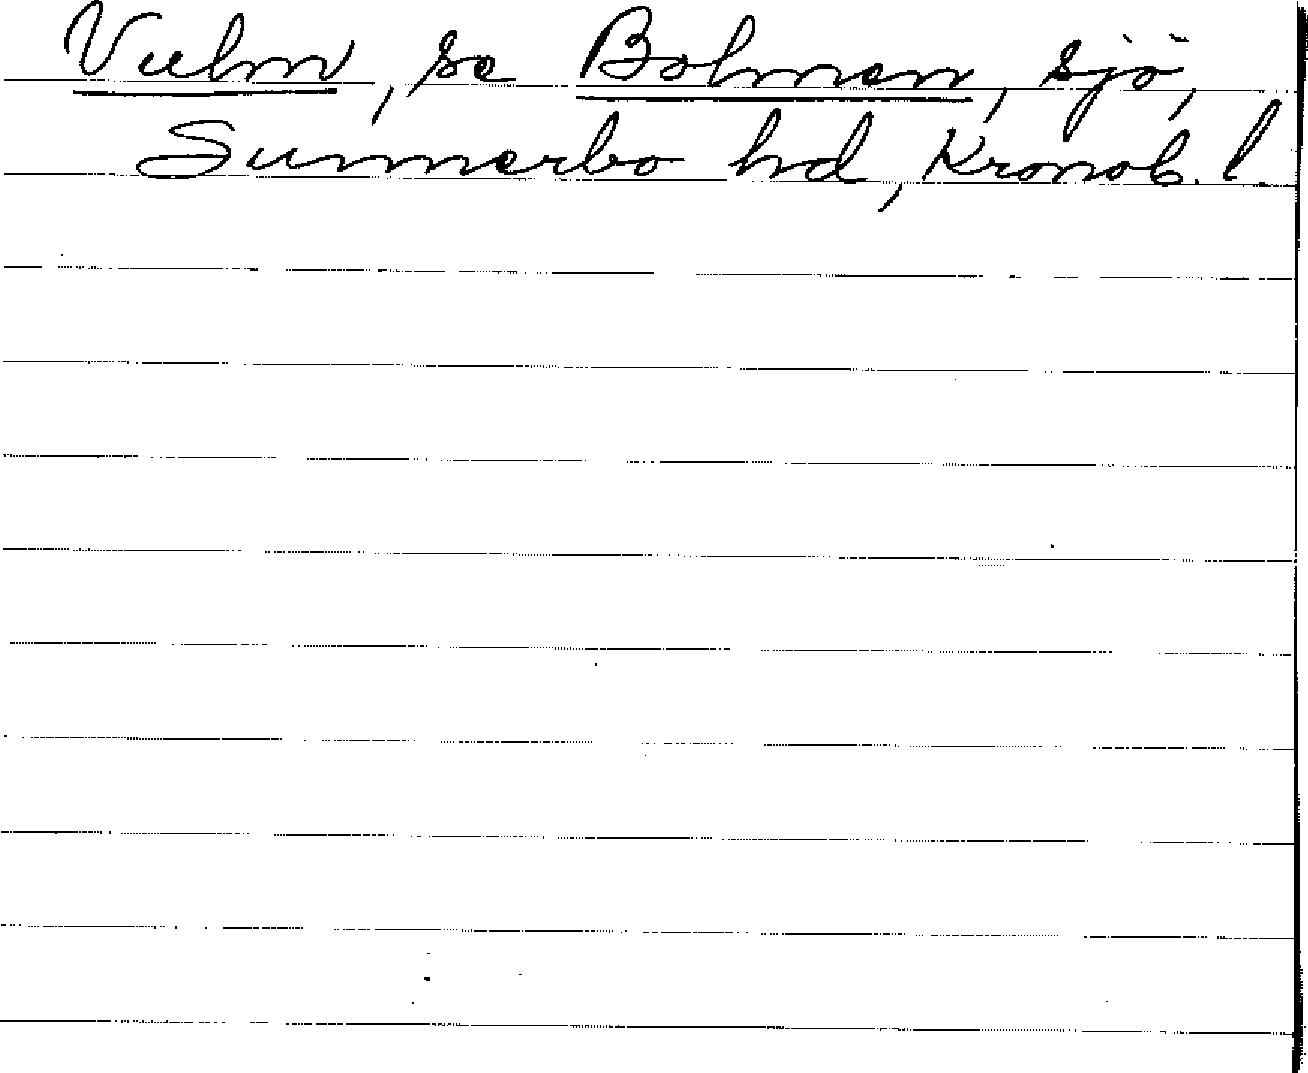 Vulm, se Bolmen, sjö,
Sunnerbo hd, Kronob. l.